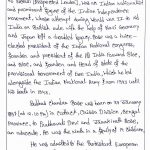 Respected Leader), was an Indian nationalist and prominent figure of the Indian Independence
movement, whose attempt during World war II to rid
India of British rule with the help of Nazi Germany
and Japan left a troubled legacy. Bose was a twice-
elected president of the Indian National Congress,
founder and president of the All India Forward Bloc,
and founder and Head of state of the Provisional
government of Free India, which he led
alongside the Indian National Army from 1943 until
his death in 1945.
Subhas Chandra Bose was born on 23 January
1897 (at 12.10 pm) in Cuttack, Orissa Division, Bengal
Province, to Prabhavati Devi and Janakinath Bose,
an advocate. He was the ninth in a family of 14 children.
He was admitted to the Protestant European